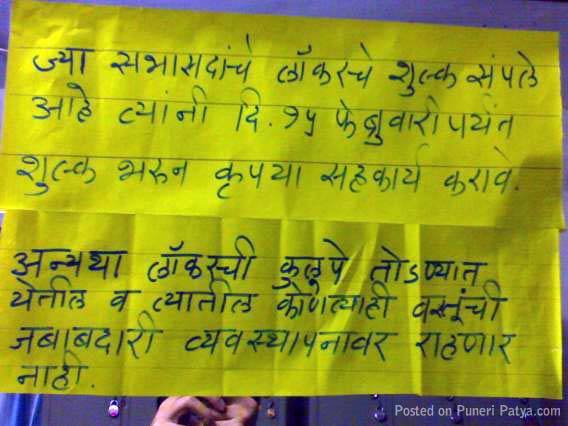 ज्या सभासदांचे लॉकरचे शुल्क संपले
आहे त्यांनी दि. १५ फेब्रुवारी पर्यंत
शुल्क भरुन कृपया सहकार्य करावे.
अन्यथा लॉकरची कुलूपे तोडण्यात
येतील व त्यातील कोणत्याही वस्तूंची
जबाबदारी व्यवस्थापनावर राहणार
नाही.
Posted on Puneri Patya.com